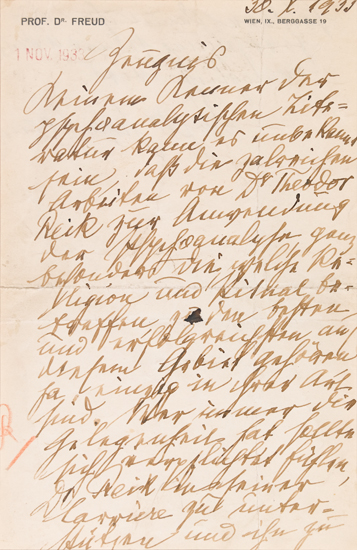 PROF. DR. FREUD
WIEN, IX., BERGGASSE 19
30. X. 1933
1 NOV. 1933
Zeugnis
Keinem Kenner der
psychoanalytischen Lite-
ratur kann es unbekannt
sein, daß die zalreichen
Arbeiten von Dr Theodor
Reik zur Anwendung
der Psychoanalyse ganz
besonders die welche Re-
ligion und Ritual be-
treffen zu den besten
und erfolgreichsten an
diesem Gebiet gehören
ja einzig in ihrer Art
sind. Wer immer die
Gelegenheit hat sollte
sich verpflichtet fühlen,
Dr Reik in seiner
Karriere zu unter-
stützen und ihn zu